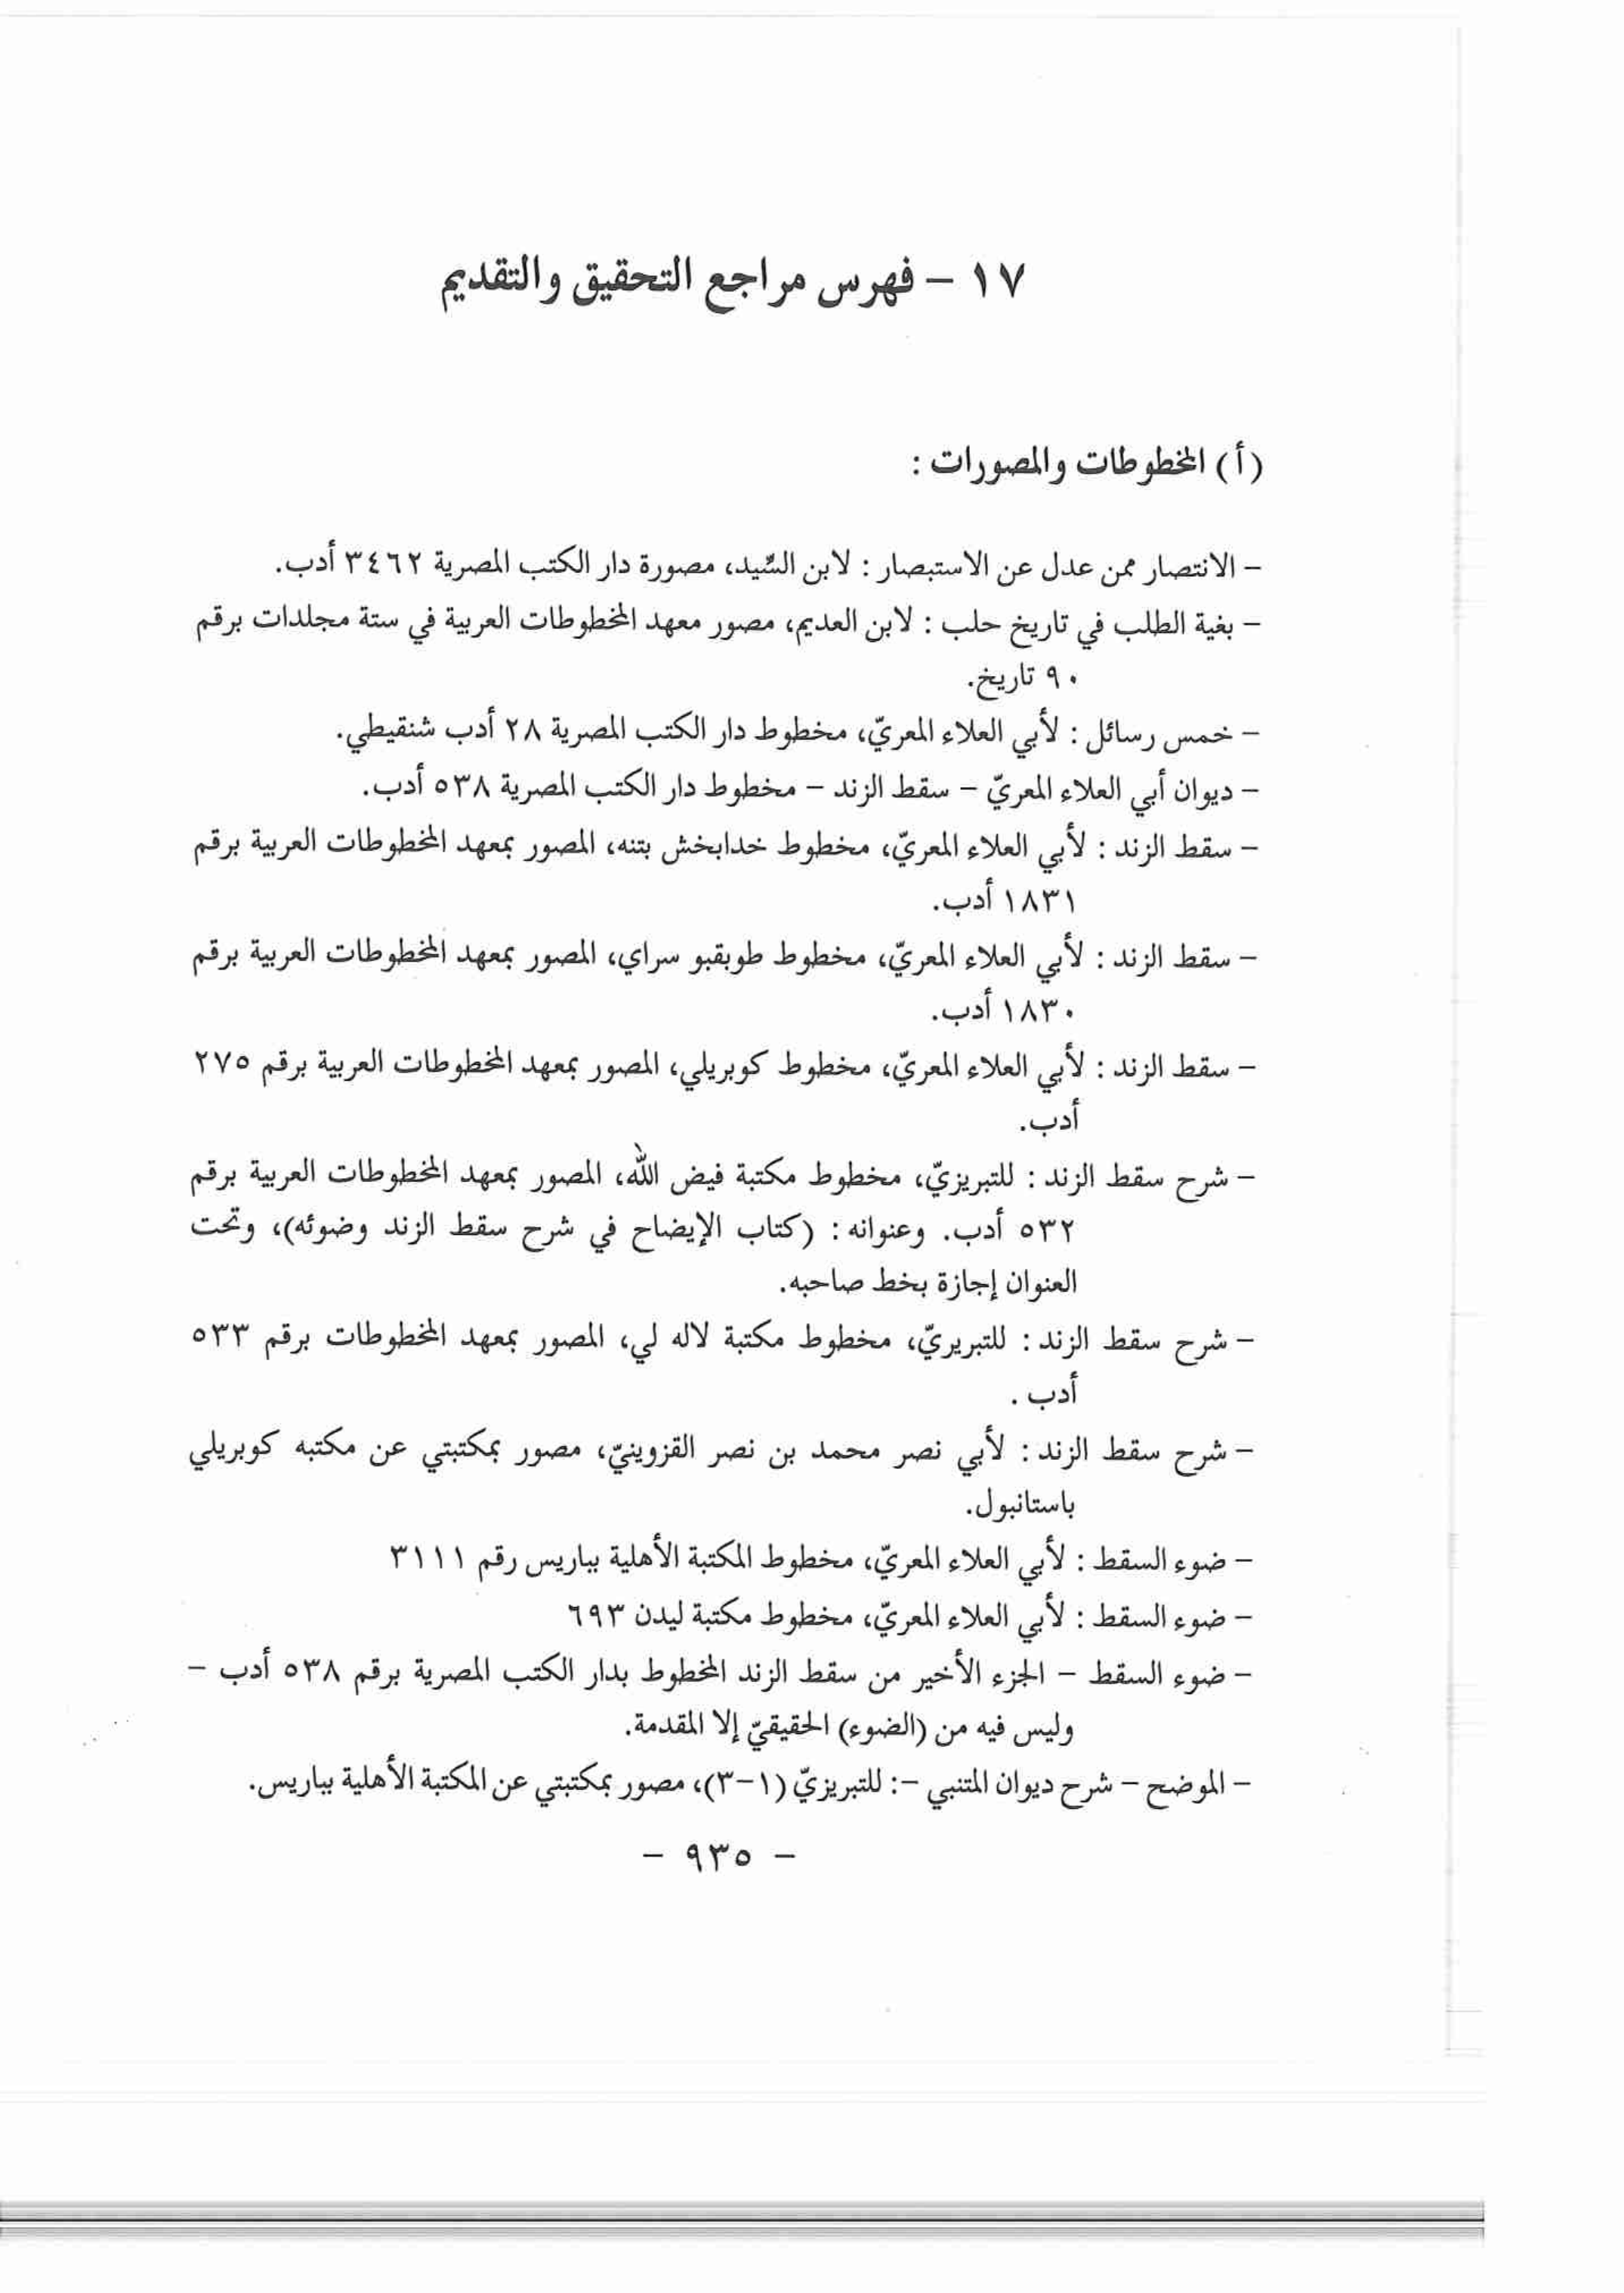 ١٧ – فهرس مراجع التحقيق والتقديم
(أ) المخطوطات والمصورات :
– الانتصار ممن عدل عن الاستبصار : لابن السِّيد، مصورة دار الكتب المصرية ٣٤٦٢ أدب.
– بغية الطلب في تاريخ حلب : لابن العديم، مصور معهد المخطوطات العربية في ستة مجلدات برقم
٩٠ تاريخ.
– خمس رسائل : لأبي العلاء المعريّ، مخطوط دار الكتب المصرية ٢٨ أدب شنقيطي.
– ديوان أبي العلاء المعريّ – سقط الزند – مخطوط دار الكتب المصرية ٥٣٨ أدب.
– سقط الزند : لأبي العلاء المعريّ، مخطوط خدابخش بتنه، المصور بمعهد المخطوطات العربية برقم
١٨٣١ أدب.
– سقط الزند : لأبي العلاء المعريّ، مخطوط طوبقبو سراي، المصور بمعهد المخطوطات العربية برقم
١٨٣٠ أدب.
– سقط الزند : لأبي العلاء المعريّ، مخطوط كوبريلي، المصور بمعهد المخطوطات العربية برقم ٢٧٥
أدب.
– شرح سقط الزند : للتبريزيّ، مخطوط مكتبة فيض الله، المصور بمعهد المخطوطات العربية برقم
٥٣٢ أدب. وعنوانه : (كتاب الإيضاح في شرح سقط الزند وضوئه)، وتحت
العنوان إجازة بخط صاحبه.
– شرح سقط الزند : للتبريريّ، مخطوط مكتبة لاله لي، المصور بمعهد المخطوطات برقم ٥٣٣
أدب .
– شرح سقط الزند : لأبي نصر محمد بن نصر القزوينيّ، مصور بمكتبتي عن مكتبه كوبريلي
باستانبول.
– ضوء السقط : لأبي العلاء المعريّ، مخطوط المكتبة الأهلية بباريس رقم ٣١١١
– ضوء السقط : لأبي العلاء المعريّ، مخطوط مكتبة ليدن ٦٩٣
– ضوء السقط – الجزء الأخير من سقط الزند المخطوط بدار الكتب المصرية برقم ٥٣٨ أدب –
وليس فيه من (الضوء) الحقيقيّ إلا المقدمة.
– الموضح – شرح ديوان المتنبي –: للتبريزيّ (١–٣)، مصور بمكتبتي عن المكتبة الأهلية بباريس.
– ٩٣٥ –